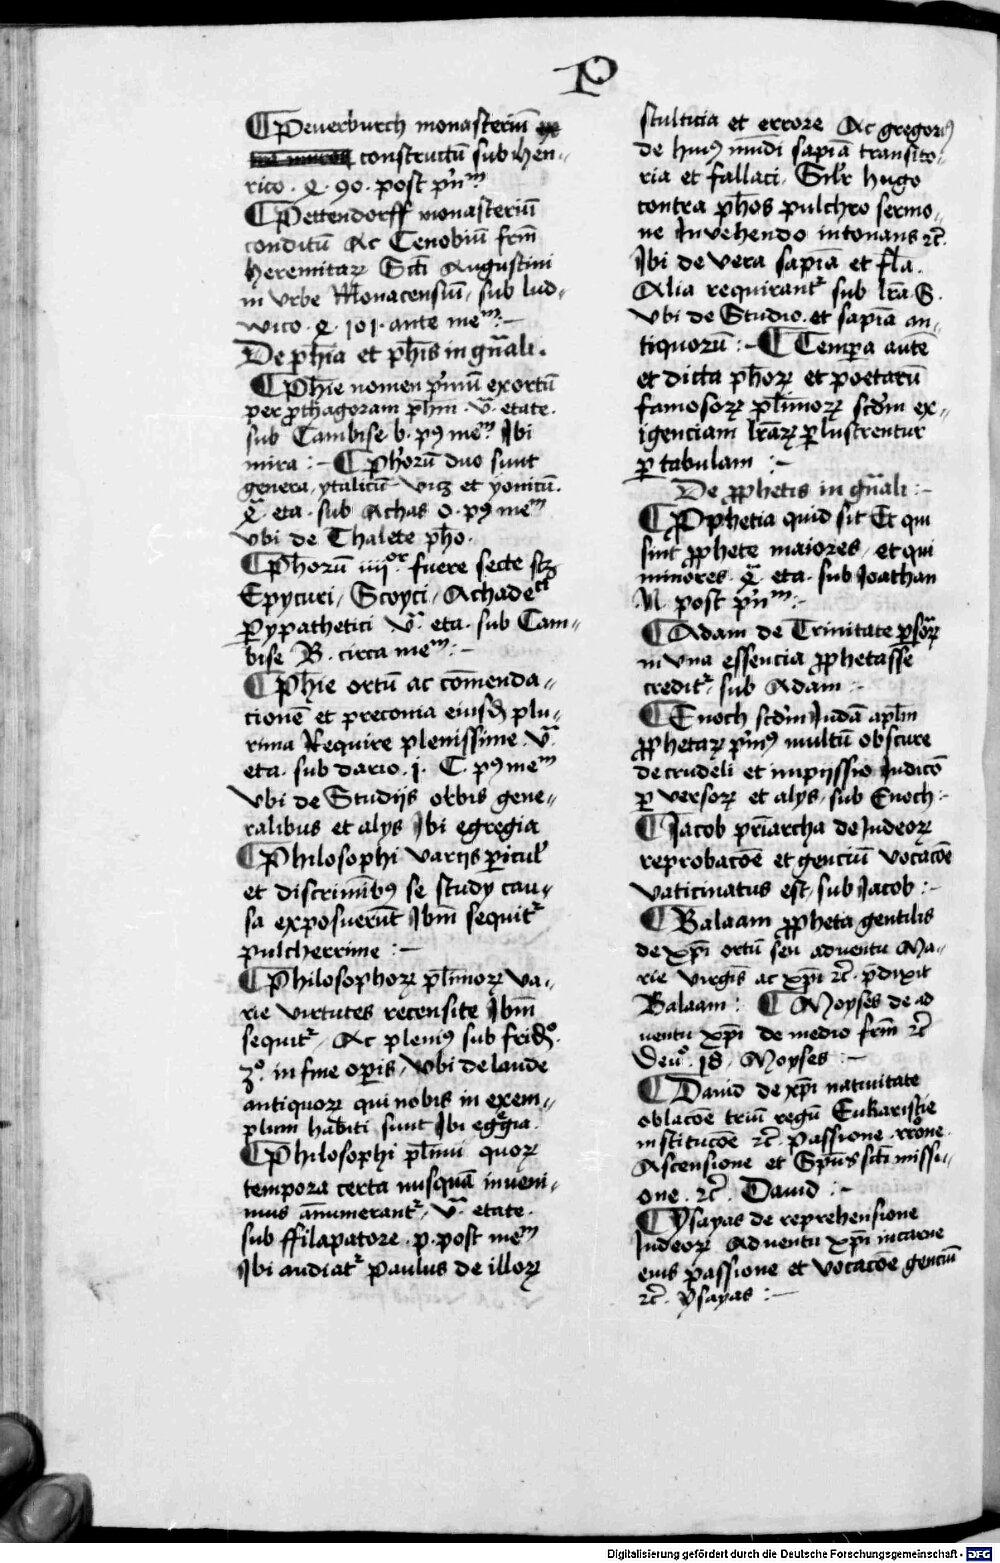 P
¶ Peuerburch monasteriū ex
tra muros constructū sub Hen-
rico . q̄ . 90 . post pⁱn᷒ᵐ
¶ Pettendorff monasteriū
conditū Ac Cenobiū frm̄
heremitaꝝ Scti Augustini
in Vrbe Monacensiū, sub lud-
wico . q̄ . 101 . ante meᵐ :-
De phīa et phīs in gn̄ali .
¶ Phīe nomen pⁱmū exortū
per pythagoram phm̄ . v̄ . etate .
sub Cambise b . pꝰ meᵐ Ibi
mira :- ¶ Phoꝝ duo sunt
genera, ytalicū vicꝫ et yonicū .
q̄ eta . sub Achas o . pꝰ meᵐ
Vbi de Thalete pho .
¶ Phorū iiijᵒʳ fuere secte scꝫ
Epycuri, Stoyci, Achadeᶜⁱ
Pypathetici v̄ . eta . sub Cam-
bise B . circa meᵐ :-
¶ Phīe ortū ac cōmenda-
tionē et preconia eiusdꝫ plu-
rima Require plenissime . v̄
eta . sub dario . i . C . pꝰ meᵐ
Vbi de Studijs orbis gene-
ralibus et alys Ibi egregia
¶ Philosophi varijs pericul̄
et discrimībꝰ se studij cau-
sa exposuerūt Ibm̄ sequitᷣ
pulcherrime :-
¶ Philosophoꝝ pl̄imoꝝ va-
rie virtutes recensite Ibm̄
sequitᷣ . Ac pleniꝰ sub fridꝫ .
3° . in fine opis, Vbi de laude
antiquoꝝ qui nobis in exem-
plum habiti sunt Ibi egᷓgia .
¶ Philosophi pl̄imi quoꝝ
tempora certa nusquā inueni-
mus ānumerantᷣ, v̄ . etate .
sub ffilapatore . p . post meᵐ
Ibi audiatᷣ Paulus de illoꝝ
stulticia et errore Ac gregoriꝰ
de huiꝰ mūdi sapīa transito-
ria et fallaci . Silr̄ hugo
contra phōs pulchro sermo-
ne Invehendo intonans ⁊c̄ .
Ibi de vera sapīa et fl̄a .
Alia requirantᷣ sub lrā . S .
Vbi de Studio . et sapīa an-
tiquorū :- ¶ Tempa autē
et dicta phoꝝ et poetarū
famosoꝝ pl̄imoꝝ scdm̄ ex-
igenciam lrāꝝ ꝑlustrentur
ꝑ tabulam :-
De ꝓphetis in gn̄ali :-
¶ Pphetia quid sit Et qui
sint ꝓphete maiores, et qui
minores . q̄ . eta . sub Joathan
N . post pⁱn᷒ᵐ :-
¶ Adam de Trinitate ꝑsonaꝝ
in vna essencia ꝓphetasse
creditᷣ, sub Adam :-
¶ Enoch scdm̄ Judā apl̄m
ꝓphetaꝝ pⁱmꝰ multū obscure
de crudeli et impijssio Judicō
ꝑversoꝝ et alys, sub Enoch :-
¶ Jacob pr̄iarcha de Judeoꝝ
reprobacōe et genciū vocacōe
vaticinatus est, sub Jacob :-
¶ Balaam ꝓpheta gentilis
de xp̄i ortū seu aduentu Ma-
rie virgīs ac xp̄i ⁊c̄ . pdixit
Balaam : ¶ Moyses de ad
uentu xp̄i de medio frm̄ ⁊c̄
Deuᵒ . 18, Moyses :-
¶ Dauid de xp̄i natiuitate
oblacōe triū regū Eukaristie
institucōe ⁊c̄ . Passione .
Ascensione et Sp̄us scti missi-
one . ⁊c̄ . Dauid :-
¶ Ysayas de reprehensione
Judeoꝝ Aduentu xp̄i incarne
eius passione et vocacōe genciū
⁊c̄ . Ysayas :-
Digitalisierung gefördert durch die Deutsche Forschungsgemeinschaft - DFG